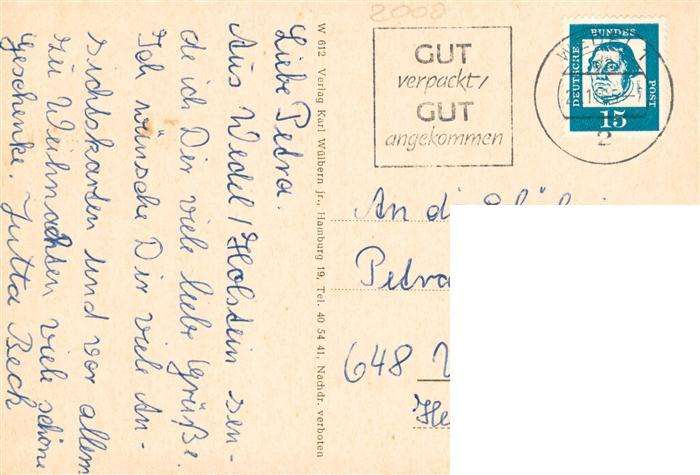 Liebe Petra.
Aus Wedel/Holstein sen-
de ich Dir viele liebe Grüße.
Ich wünsche Dir viele An-
sichtskarten und vor allem
zu Weihnachten viele schöne
Geschenke. Jutta Beck
W 612 Verlag Karl Wülbern jr., Hamburg 19, Tel. 40 54 41, Nachdr. verboten
2000
GUT
verpackt,
GUT
angekommen
DEUTSCHE
BUNDES
POST
15
2
An
Petra
648